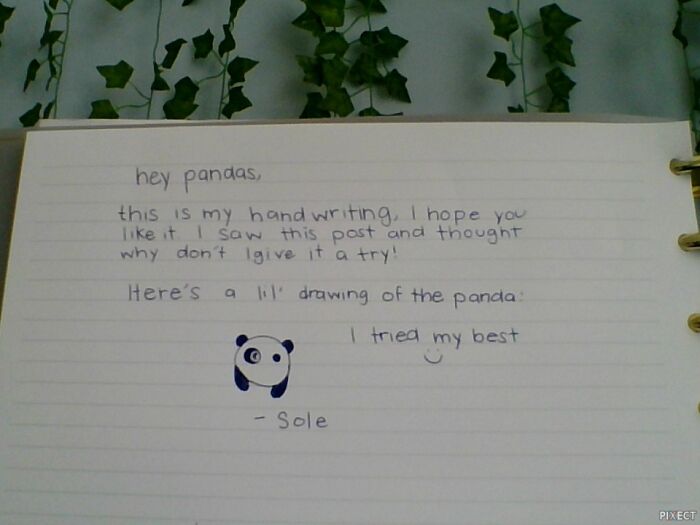 hey pandas,
this is my handwriting, I hope you
like it. I saw this post and thought
why don't I give it a try!
Here's a lil' drawing of the panda:
I tried my best
- Sole
PIXECT